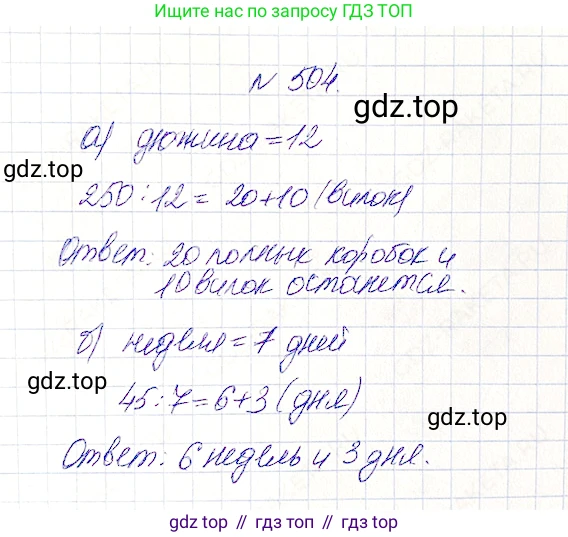 Ищите нас по запросу ГДЗ ТОП
N 504.
gdz.top
а) дюжина = 12
gdz.top
250 : 12 = 20 + 10 (вилок)
Ответ: 20 полных коробок и
10 вилок останется.
б) неделя = 7 дней
gdz.top
45 : 7 = 6 + 3 (дня)
gdz.top
Ответ: 6 недель и 3 дня.
gdz top // гдз топ // gdz.top